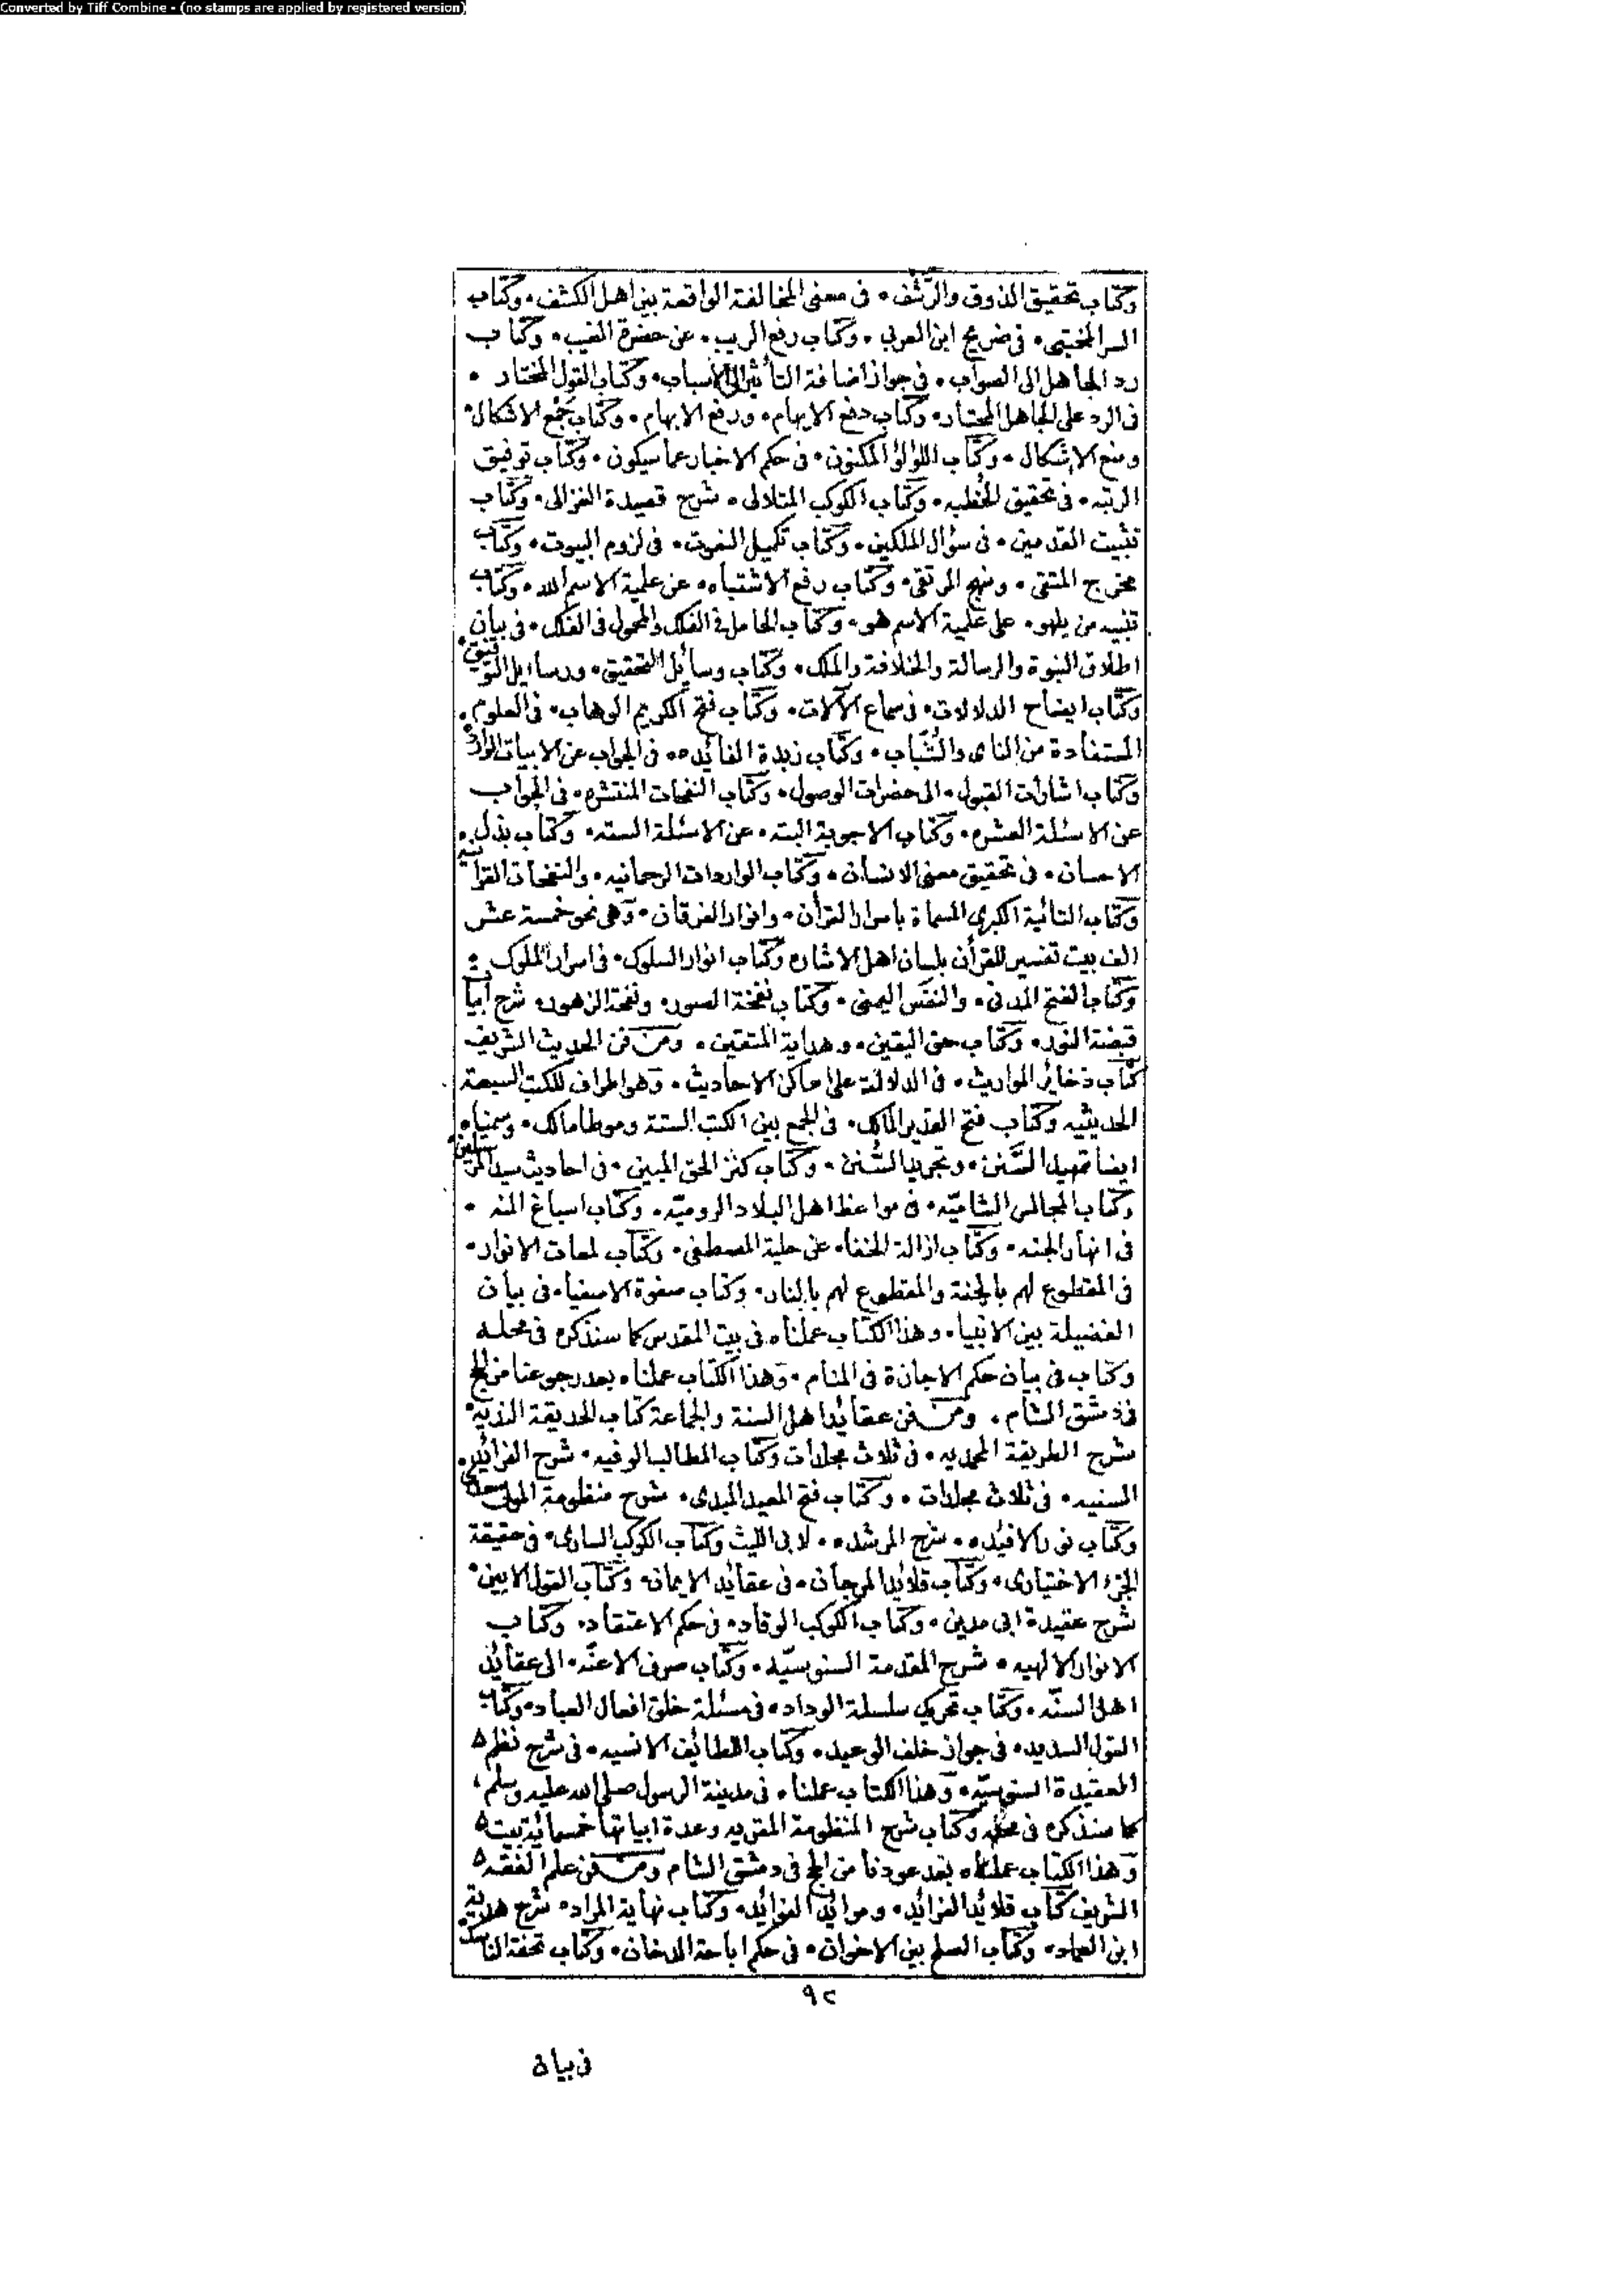 Converted by Tiff Combine - (no stamps are applied by registered version)
وكتاب تحقيق الذوق والرشف • فى معنى المخالفة الواقعة بين اهل الكشف • وكتاب
السر المختبى • فى ضريح ابن العربى • وكتاب رفع الريب • عن حضرة الغيب • وكتاب
رد الجاهل الى الصواب • فى جواز اضافة التأثير الى الأسباب • وكتاب القول المختار •
فى الرد على الجاهل المحتار • وكتاب دفع الايهام • ورفع الابهام • وكتاب جمع الاشكال •
ومنع الاشكال • وكتاب اللؤلؤ المكنون • فى حكم الاخبار عما سيكون • وكتاب توفيق
الرتبه • فى تحقيق الخطبه • وكتاب الكوكب المتلالى • شرح قصيدة الغزالى • وكتاب
تثبيت القدمين • فى سؤال الملكين • وكتاب تكميل النعوت • فى لزوم البيوت • وكتاب
مخرج المتقى • ومنهج المرتقى • وكتاب رفع الاشتباه • عن علمية الاسم الله • وكتاب
تنبيه من يلهو • على علمية الاسم هو • وكتاب الحامل فى الفلك والمحمول فى الفلك • فى بيان
اطلاق النبوة والرسالة والخلافة والملك • وكتاب وسائل التحقيق • ورسايل التوفيق •
وكتاب ايضاح الدلالات • فى سماع الآلات • وكتاب فتح الكريم الوهاب • فى العلوم •
المستفادة من الناى والشباب • وكتاب زبدة الفائده • فى الجواب عن الابيات الوارده
وكتاب اشارات القبول • الى حضرات الوصول • وكتاب النفحات المنتشره • فى الجواب
عن الاسئلة العشره • وكتاب الاجوبة البته • عن الاسئلة السته • وكتاب بذل •
الاحسان • فى تحقيق معنى الانسان • وكتاب الواردات الرحمانيه • والنفحات القرآنيه
وكتاب التائية الكبرى المسماة باسرار القرأن • وانوار الفرقان • وهى نحو خمسة عشر
الف بيت تفسير للقرأن بلسان اهل الاشاره وكتاب انوار السلوك • فى اسرار الملوك •
وكتاب الفتح المدنى • والنفس اليمنى • وكتاب نفخة الصور • ونفحة الزهور • شرح أبيات
قبضة النور • وكتاب حق اليقين • وهداية المتقين • ومن فن الحديث الشريف
كتاب ذخائر المواريث • فى الدلالة على اماكن الاحاديث • وهو اطراف للكتب السبعة
الحديثيه وكتاب فتح القدير المالك • فى الجمع بين الكتب الستة وموطا مالك • وسميناه
ايضا تمهيد السنن • وتجريد السنن • وكتاب كنز الحق المبين • فى احاديث سيد المرسلين •
وكتاب المجالس الشاميه • فى مواعظ اهل البلاد الروميّه • وكتاب اسباغ المنه •
فى انهار الجنه • وكتاب ازالة الخفا • عن حلية المصطفى • وكتاب لمعات الانوار •
فى المقطوع لهم بالجنة والمقطوع لهم بالنار • وكتاب صفوة الاصفياء • فى بيان
الفضيلة بين الانبيا • وهذا الكتاب عملناه فى بيت المقدس كما سنذكره فى محله
وكتاب فى بيان حكم الاجازة فى المنام • وهذا الكتاب عملناه بعد رجوعنا من الحج
فى دمشق الشام • ومن فن عقائد اهل السنة والجماعة كتاب الحديقة النديه •
شرح الطريقة المحمديه • فى ثلاث مجلدات وكتاب المطالب الوفيه • شرح الفرائد •
السنيه • فى ثلاث مجلدات • وكتاب فتح المعيد المبدى • شرح منظومة المولى سعدى
وكتاب نور الافيده • شرح المرشده • لابى الليث وكتاب الكوكب السارى • فى حقيقة
الجزء الاختيارى • وكتاب قلائد المرجان • فى عقائد الايمان • وكتاب القول الابين •
شرح عقيدة ابى مدين • وكتاب الكوكب الوقاد • فى حكم الاعتقاد • وكتاب
الانوار الالهيه • شرح المقدمة السنوسيّه • وكتاب صرف الاعنّه • الى عقائد
اهل السنّه • وكتاب تحريك سلسلة الوداد • فى مسئلة خلق افعال العباد • وكتاب
القول السديد • فى جواز خلف الوعيد • وكتاب اللطائف الانسيه • فى شرح نظم ه
العقيدة السنوسيّه • وهذا الكتاب عملناه فى مدينة الرسول صلى الله عليه وسلم
كما سنذكره فى محله وكتاب شرح المنظومة المقريه وعدة ابياتها خمسمائة بيت ه
وهذا الكتاب عملناه بعد عودنا من الحج فى دمشق الشام ومن فن علم الفقه ه
الشريف كتاب قلائد الفرائد • وموائد الفوائد • وكتاب نهاية المراد • شرح هدية
ابن العماد • وكتاب الصلح بين الاخوان • فى حكم اباحة الدخان • وكتاب تحفة الناسك •
٩٢
فى بيان